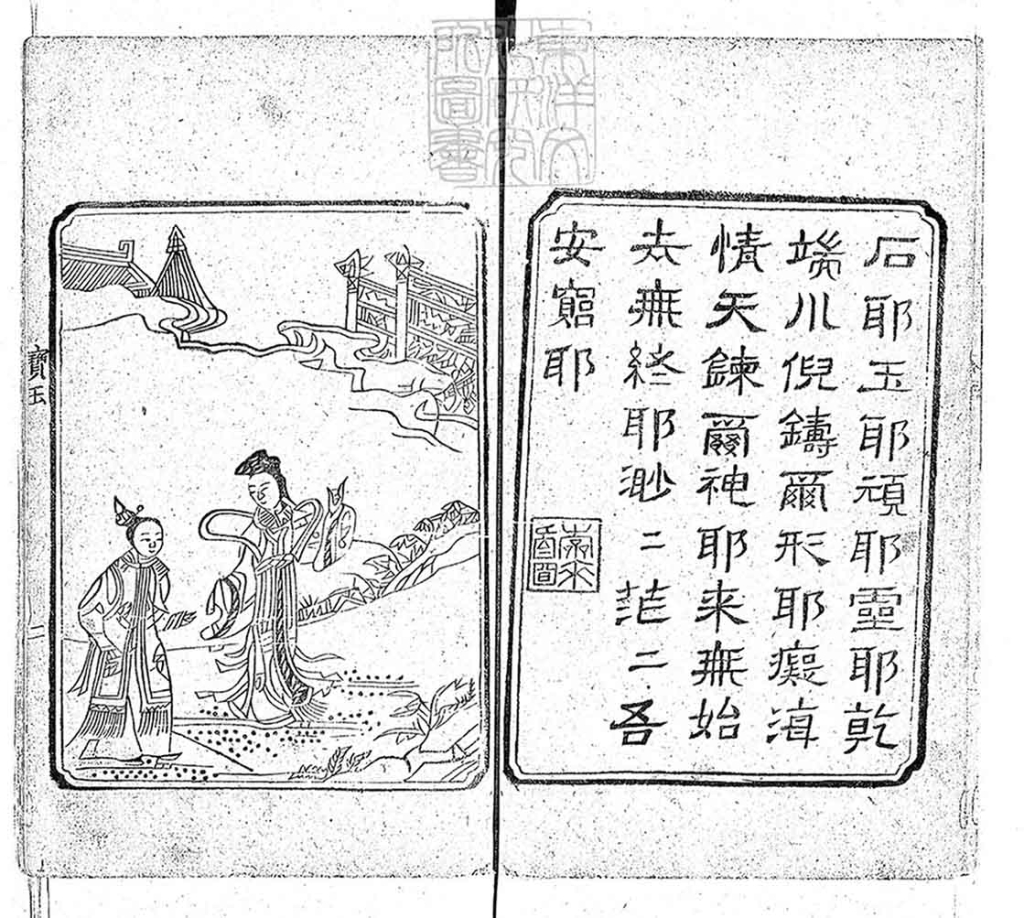 東洋文
化研究
所圖書
石耶玉耶頑耶靈耶乾
端川倪鑄爾形耶癡海
情天鍊爾神耶来無始
去無終耶渺二茫二吾
安窮耶
寶玉